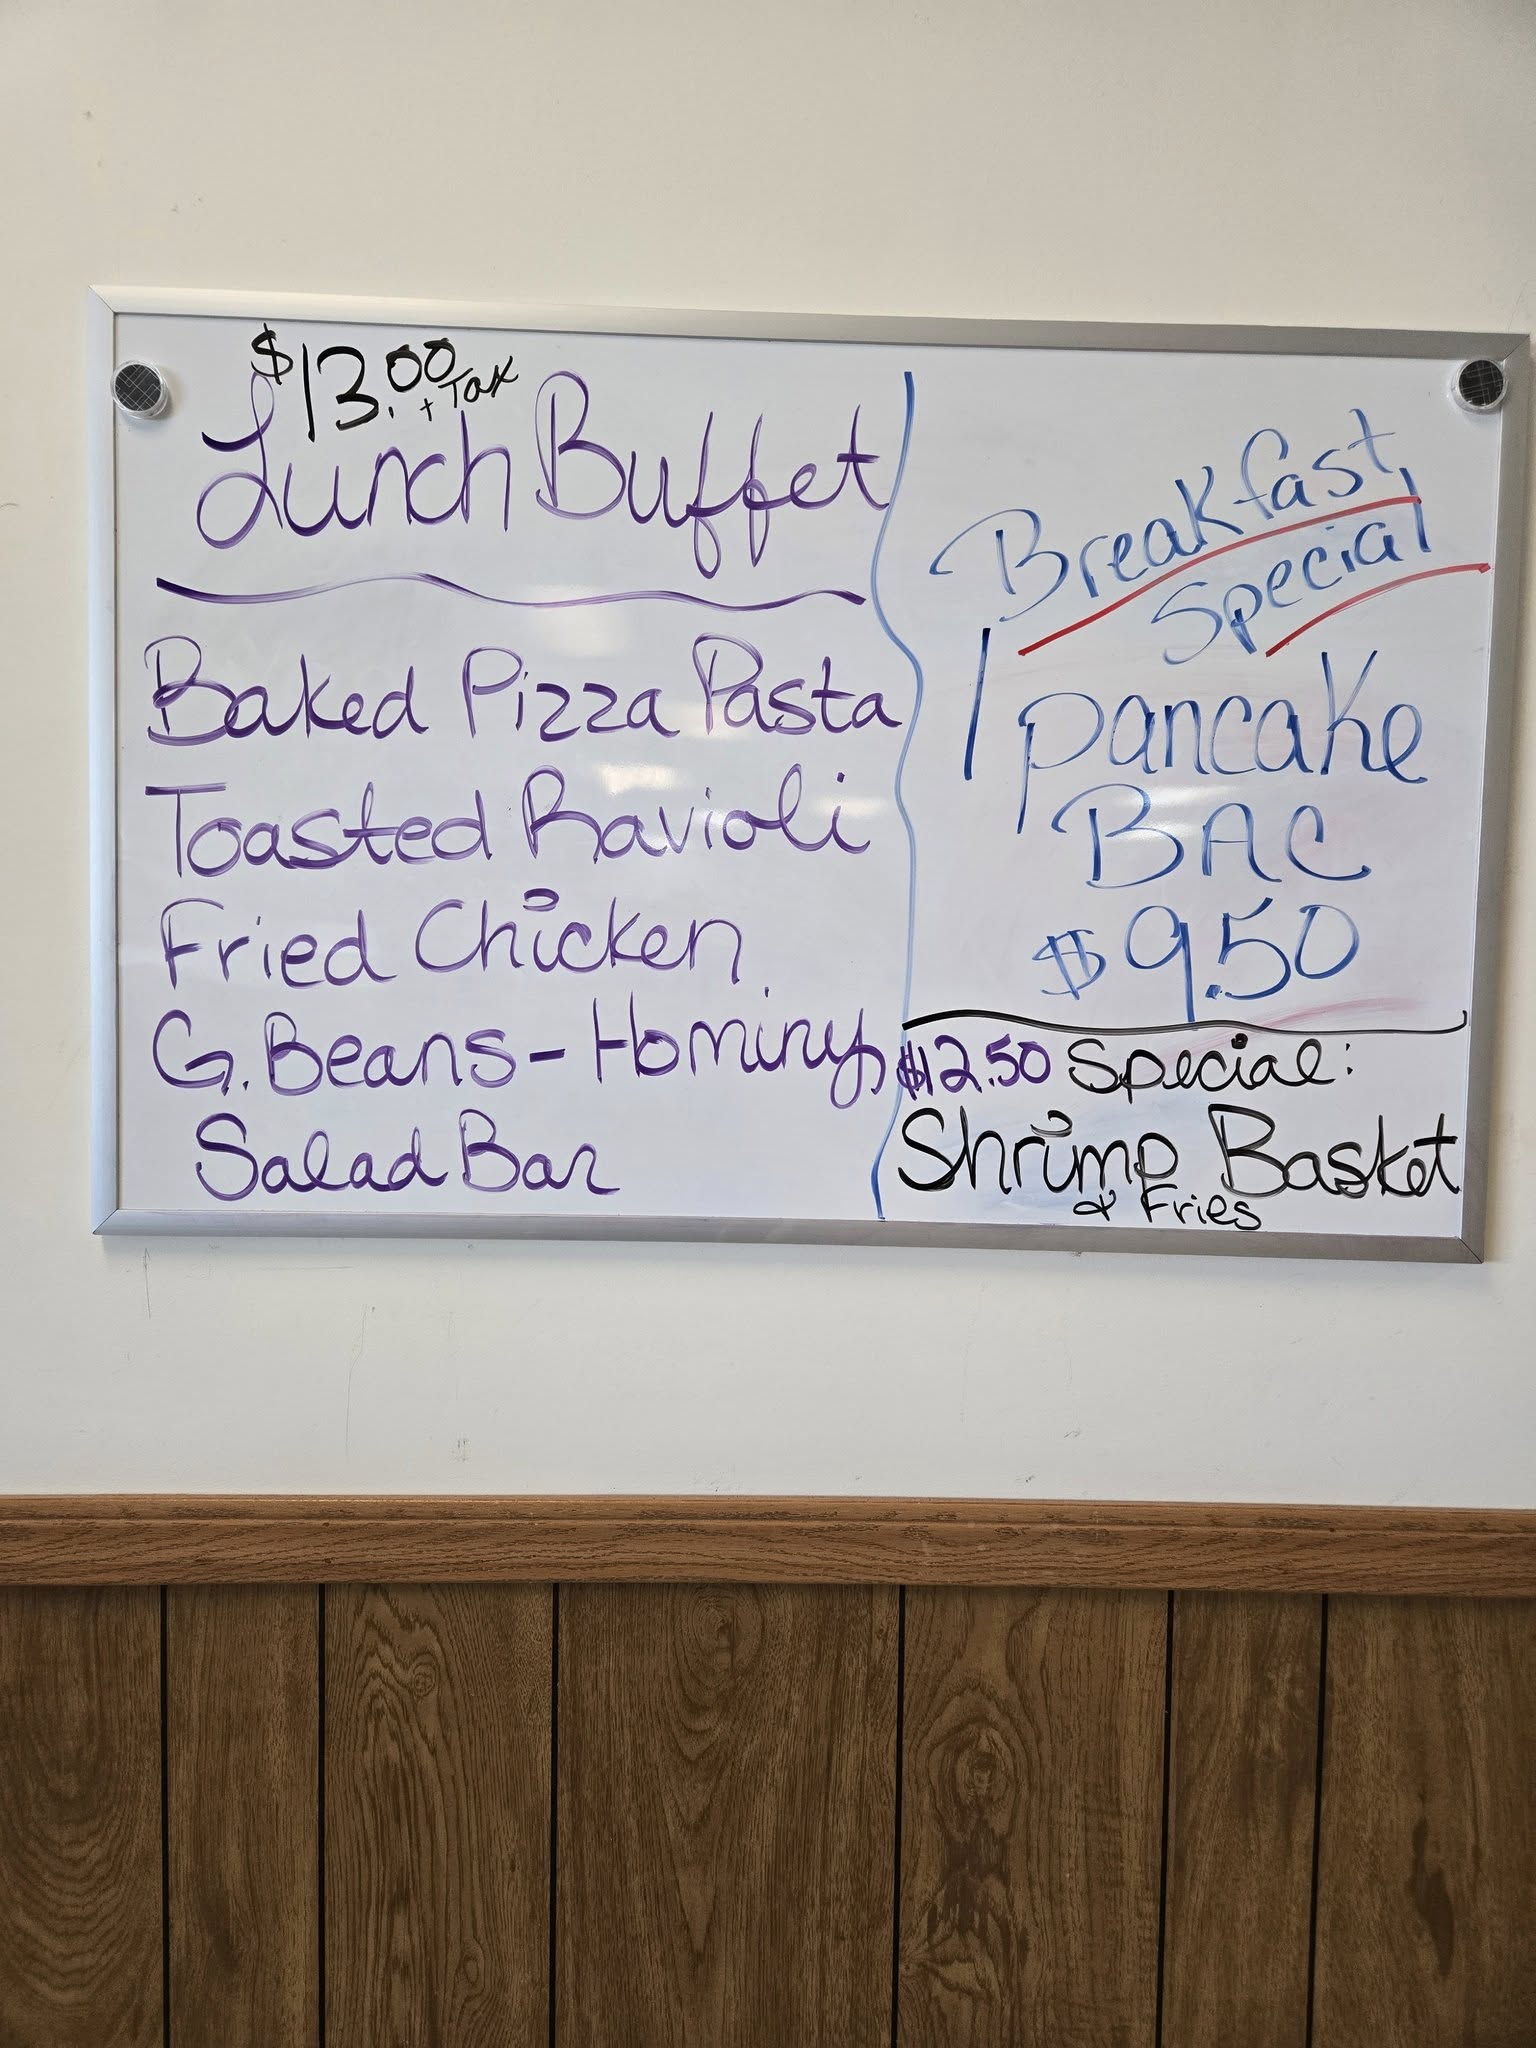 $13.00 + Tax
Lunch Buffet
Baked Pizza Pasta
Toasted Ravioli
Fried Chicken
G. Beans - Hominy
Salad Bar
Breakfast
Special
1 pancake
BAC
$9.50
$12.50 Special:
Shrimp Basket
& Fries